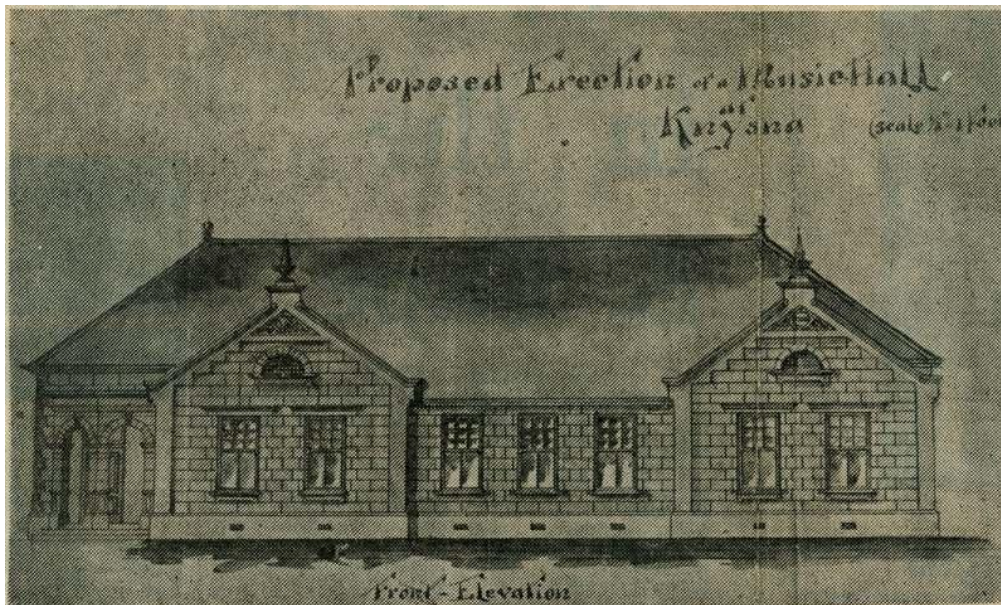 Proposed Erection of a Music Hall
at
Knysna (scale
Front - Elevation